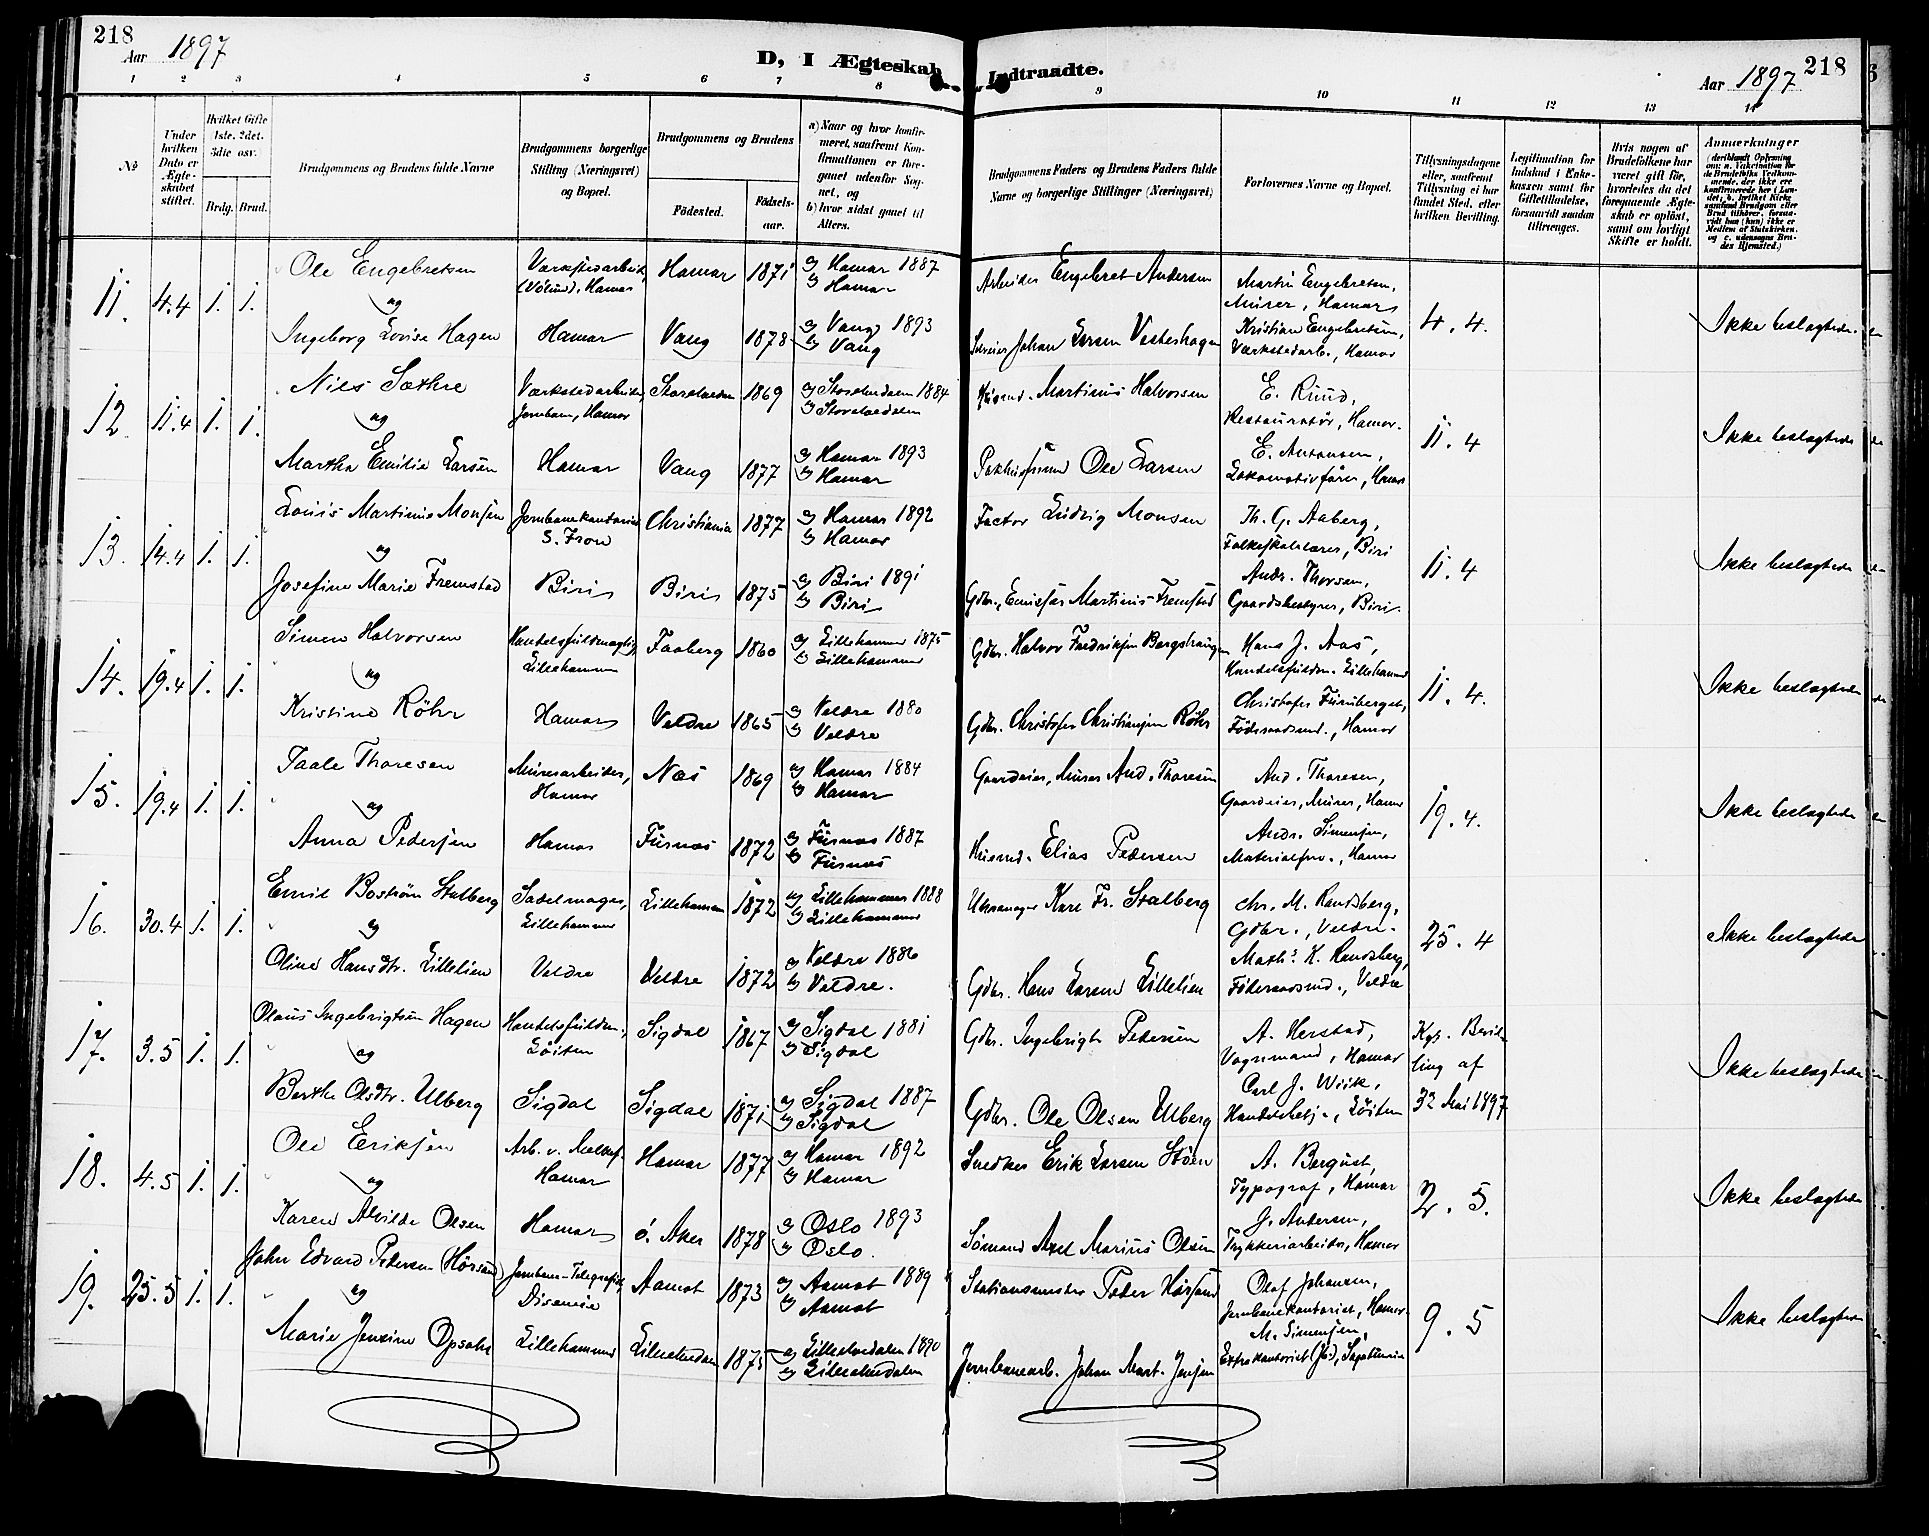 218
Aar 1897
D, I Ægteskab Indtraadte.
Aar 1897
218
1 2 3 4 5 6 7 8 9 10 11 12 13 14
No.
Under hvilken Dato er Ægteskabet stiftet.
Hvilket Gifte 1ste, 2det, 3die osv.
Brdg. Brud.
Brudgommens og Brudens fulde Navne
Brudgommens borgerlige Stilling (Næringsvei) og Bopæl.
Brudgommens og Brudens
Födested.
Födselsaar.
a) Naar og hvor konfirmeret, saafremt Konfirmationen er foregaaet udenfor Sognet, og
b) hvor sidst gaaet til Alters.
Brudgommens Faders og Brudens Faders fulde Navne og borgerlige Stillinger (Næringsvei)
Forlovernes Navne og Bopæl.
Tillysningsdagene eller, saafremt Tillysning ei har fundet Sted, efter hvilken Bevilling.
Legitimation for Indskud i Enkekassen samt for Giftetilladelse, forsaavidt saadan tiltrænges.
Hvis nogen af Brudefolkene har været gift för, hvorledes da det foregaaende Ægteskab er oplöst, samt om lovligt Skifte er holdt.
Anmerkninger
11. 4.4 1. 1. Ole Engebretsen Værkstedarbeid. (Völund), Hamar Hamar 1871 a) Hamar 1887 b) Hamar Arbeider Engebret Andersen Martin Engebretsen, Murer, Hamar 4.4. Ikke beslægtede.
og
Ingeborg Lovise Hagen Hamar Vang 1878 a) Vang 1893 b) Vang Johan Larsen Vesterhagen Kristian Engebretsen, Værkstedarb., Hamar
12. 11.4 1. 1. Nils Sæthre Værkstedarbeider Jernban., Hamar Storelvedalen 1869 a) Storelvedalen 1884 b) Storelvedalen Husmd. Martinus Halvorsen E. Ruud, Restauratör, Hamar. 11.4 Ikke beslægtede
og
Martha Emilie Larsen Hamar Vang 1877 a) Hamar 1893 b) Hamar Pakhusmand Ole Larsen E. Antonsen, Lokomotivförer, Hamar
13. 14.4 1. 1. Louis Martinius Monsen Jernbanekontorist S. Fron Christiania 1877 a) Hamar 1892 b) Hamar Factor Ludvig Monsen Th. G. Aaberg, Folkeskolelærer, Biri 11.4 Ikke beslægtede
og
Josefine Marie Fremstad Biri Biri 1875 a) Biri 1891 b) Biri Gdbr., Emissær Martinus Fremstad Andr. Thorsen, Gaardsbestyrer, Biri
14. 19.4 1. 1. Simen Halvorsen Handelsfuldmægtig, Lillehammer Faaberg 1860 a) Lillehammer 1875 b) Lillehammer Gdbr. Halvor Fredriksen Bergshaugen Hans J. Aas, Handelsfuldm. Lillehammer 11.4. Ikke beslægtede
og
Kristine Röhr Hamar Veldre 1865 a) Veldre 1880 b) Veldre Gdbr. Christofer Christiansen Röhr Christofer Furuberget, Föderaadsmd., Hamar
15. 19.4 1. 1. Paale Thoresen Murerarbeider, Hamar Næs 1869 a) Hamar 1884 b) Hamar Gaardeier, Murer And. Thoresen And. Thoresen, Gaardeier, Murer, Hamar 19.4. Ikke beslægtede
og
Anna Pedersen Hamar Furnæs 1872 a) Furnæs 1887 b) Furnæs Husmd. Elias Pedersen Andr. Simensen, Materialforv., Hamar
16. 30.4 1. 1. Emil Boström Stalberg Sadelmager, Lillehammer Lillehammer 1872 a) Lillehammer 1888 b) Lillehammer Uhrmager Karl Fr. Stalberg Chr. M. Randsberg, Gdbr., Veldre. 25.4 Ikke beslægtede
og
Oline Hansdtr. Lillelien Veldre Veldre 1872 a) Veldre 1886 b) Veldre. Gdbr. Hans Larsen Lillelien Math. K. Randsberg, Föderaadsmd., Veldre
17. 3.5 1. 1. Olaus Ingebrigtsen Hagen Handelsfuldm., Löiten Sigdal 1867 a) Sigdal 1881 b) Sigdal Gdbr. Ingebrigt Pedersen A. Herstad, Vognmand, Hamar Kgl. Bevilling af 32 Mai 1897 Ikke beslægtede
og
Berthe Olsdtr. Ulberg Sigdal Sigdal 1871 a) Sigdal 1887 b) Sigdal Gdbr. Ole Olsen Ulberg Carl J. Wiik, Handelsbetj., Löiten
18. 4.5 1. 1. Ole Eriksen Arb. v. Melkef. Hamar Hamar 1877 a) Hamar 1892 b) Hamar Snedker Erik Larsen Stöen A. Berquist, Typograf, Hamar 2.5. Ikke beslægtede
og
Karen Alvilde Olsen Hamar Ö. Aker 1878 a) Oslo 1893 b) Oslo. Sömand Axel Marius Olsen J. Andersen, Trykkeriarbeider, Hamar
19. 25.5 1. 1. John Edvard Pedersen Hörsand Jernbane-Telegrafist, Disenaaen Aamot 1873 a) Aamot 1889 b) Aamot Stationsmester Peder Hörsand Olaf Johansen, Jernbanekontorist, Hamar. 9.5 Ikke beslægtede
og
Marie Jensine Opsahl Lillehammer Lilleelvedalen 1875 a) Lilleelvedalen 1890 b) Lilleelvedalen Jernbanearb. Johan Mart. Jensen M. Simensen, Extrakontorist